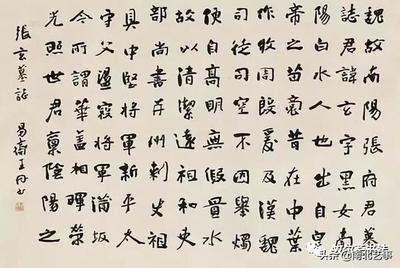 魏故南陽張府君墓
誌君諱玄字黑女南
陽白水人也出自皇
帝之苗裔昔在中葉
作牧周殷爰及漢魏
司徒司空不因舉燭
便自高明無假置水
故以清潔遠祖和吏
部尚書并州刺史祖
具中堅將軍新平太
守父盪寇將軍蒲坂
令所謂華蓋相暉榮
光照世君稟陰陽之
張玄墓誌
头条 @南北艺事